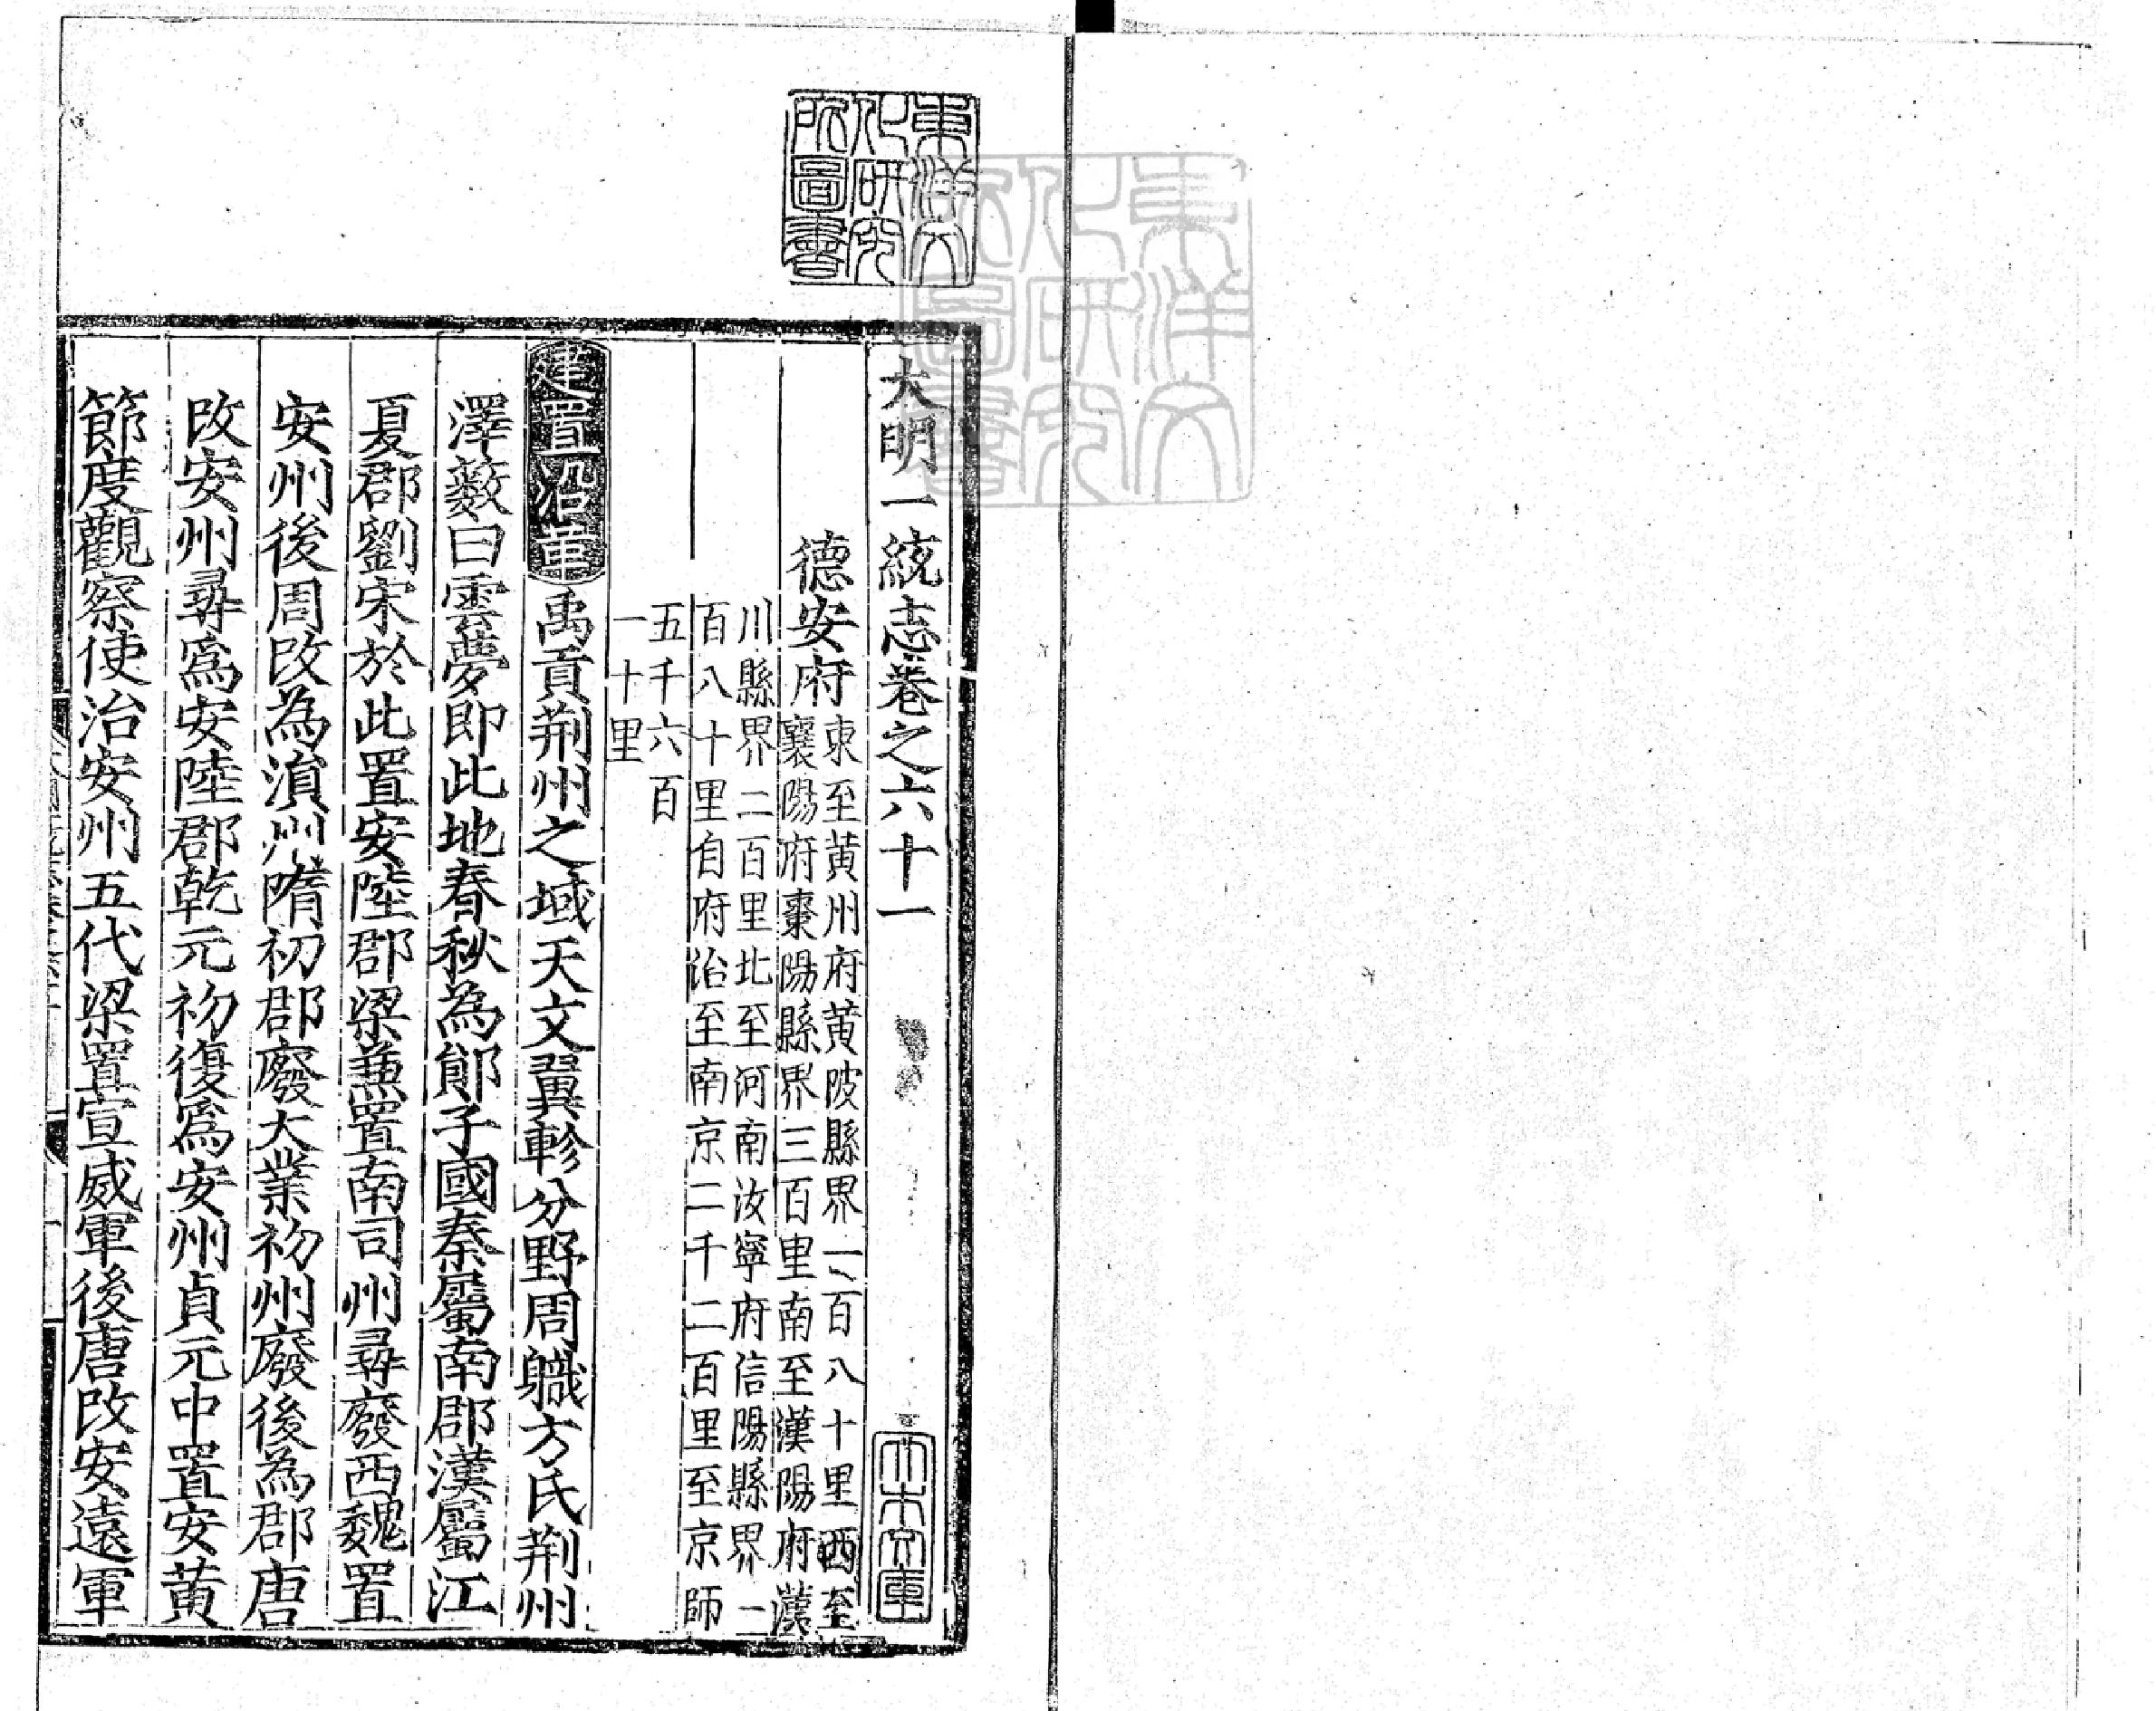 東洋文
化研究
所圖書
大明一統志卷之六十一
德安府
東至黃州府黃陂縣界一百八十里西至
襄陽府棗陽縣界三百里南至漢陽府漢
川縣界二百里北至河南汝寧府信陽縣界二
百八十里自府治至南京二千二百里至京師
五千六百
一十里
建置沿革禹貢荆州之域天文翼軫分野周職方氏荆州
澤藪曰雲夢即此地春秋為鄖子國秦屬南郡漢屬江
夏郡劉宋於此置安陸郡梁兼置南司州尋廢西魏置
安州後周改為溳州隋初郡廢大業初州廢後為郡唐
改安州尋爲安陸郡乾元初復爲安州貞元中置安黃
節度觀察使治安州五代梁置宣威軍後唐改安遠軍